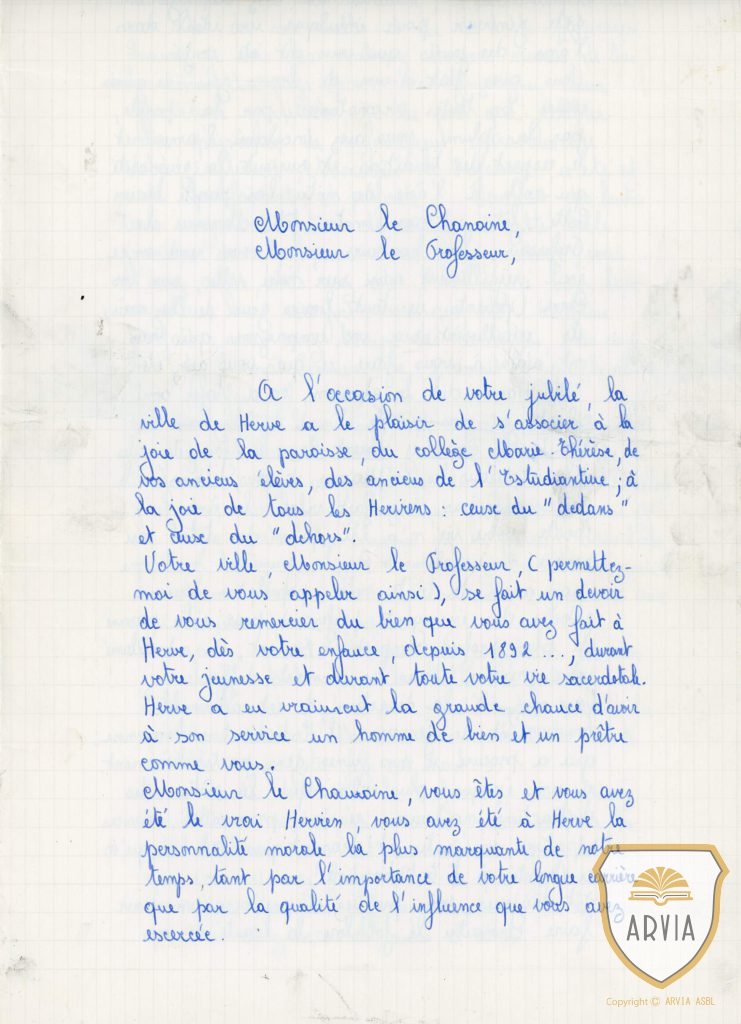 Monsieur le Chanoine,
Monsieur le Professeur,
A l'occasion de votre jubilé, la
ville de Herve a le plaisir de s'associer à la
joie de la paroisse, du collège Marie-Thérèse, de
vos anciens élèves, des anciens de l'Estudiantine ; à
la joie de tous les Herviens : ceux du "dedans"
et ceux du "dehors".
Votre ville, Monsieur le Professeur, (permettez-
moi de vous appeler ainsi), se fait un devoir
de vous remercier du bien que vous avez fait à
Herve, dès votre enfance, depuis 1892 ..., durant
votre jeunesse et durant toute votre vie sacerdotale.
Herve a eu vraiment la grande chance d'avoir
à son service un homme de bien et un prêtre
comme vous.
Monsieur le Chanoine, vous êtes et vous avez
été le vrai Hervien, vous avez été à Herve la
personnalité morale la plus marquante de notre
temps, tant par l'importance de votre longue carrière
que par la qualité de l'influence que vous avez
exercée.
ARVIA
Copyright © ARVIA ASBL